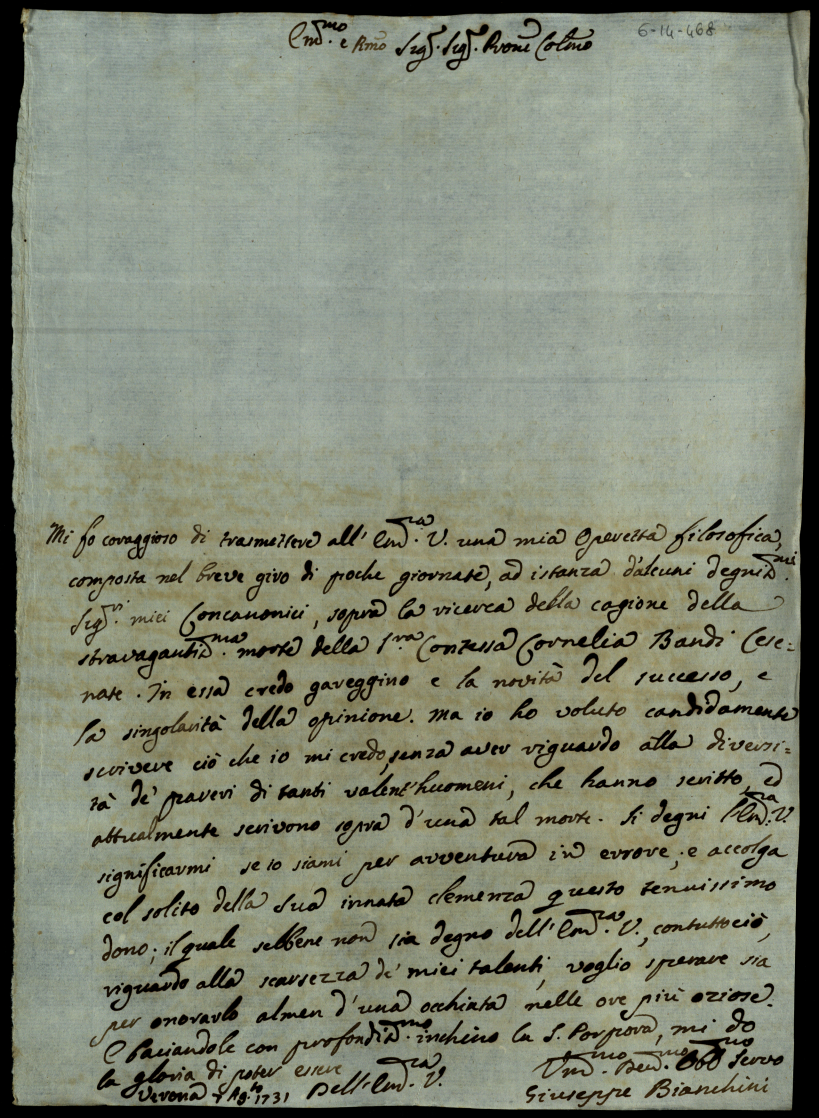 Em.mo e Rmo Sig.r Sig.r Prone Colmo
6-14-468
Mi fo coraggioso di trasmettere all'Em.ra V. una mia Operetta filosofica,
composta nel breve giro di poche giornate, ad istanza d'alcuni degniss.mi
Sig.ri miei Concanonici, sopra la ricerca della cagione della
stravagantiss.ma morte della S.ra Contessa Cornelia Bandi Cese=
nate. In essa credo gareggino e la novità del successo, e
la singolarità della opinione. Ma io ho voluto candidamente
scrivere ciò che io mi credo, senza aver riguardo alla diversi=
tà de' pareri di tanti valent'huomeni, che hanno scritto, ed
attualmente scrivono sopra d'una tal morte. Si degni l'Em.ra V.
significarmi se io siami per avventura in errore; e accolga
col solito della Sua innata clemenza questo tenuissimo
dono; il quale sebbene non sia degno dell'Em.ra V., contuttociò,
riguardo alla scarsezza de' miei talenti, voglio sperare sia
per onorarlo almen d'una occhiata nelle ore più oziose.
E baciandole con profondiss.mo inchino la S. Porpora, mi do
la gloria di poter essere
Dell'Em.ra V.
Verona Ag.to 1731
Um.mo Dev.mo Obb.mo Servo
Giuseppe Bianchini